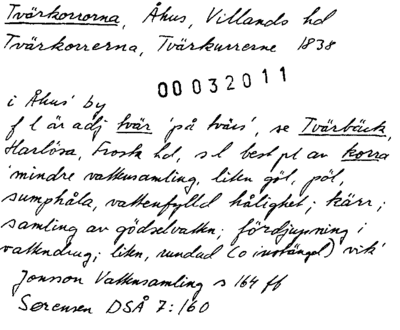 Tvärkorrorna, Åhus, Villands hd
Tvärkorrerna, Tvärkurrerne 1838
00032011
i Åhus by
f l är adj tvär 'på tvärs', se Tvärbäck,
Harlösa, Frosta hd, s l best pl av korra
'mindre vattensamling, liten göl, pöl,
sumphåla, vattenfylld hålighet; kärr;
samling av gödselvatten; fördjupning i
vattendrag; liten, rundad (o instängd) vik'
Jonsson Vattensamling s 164 ff
Sørensen DSÅ 7:160